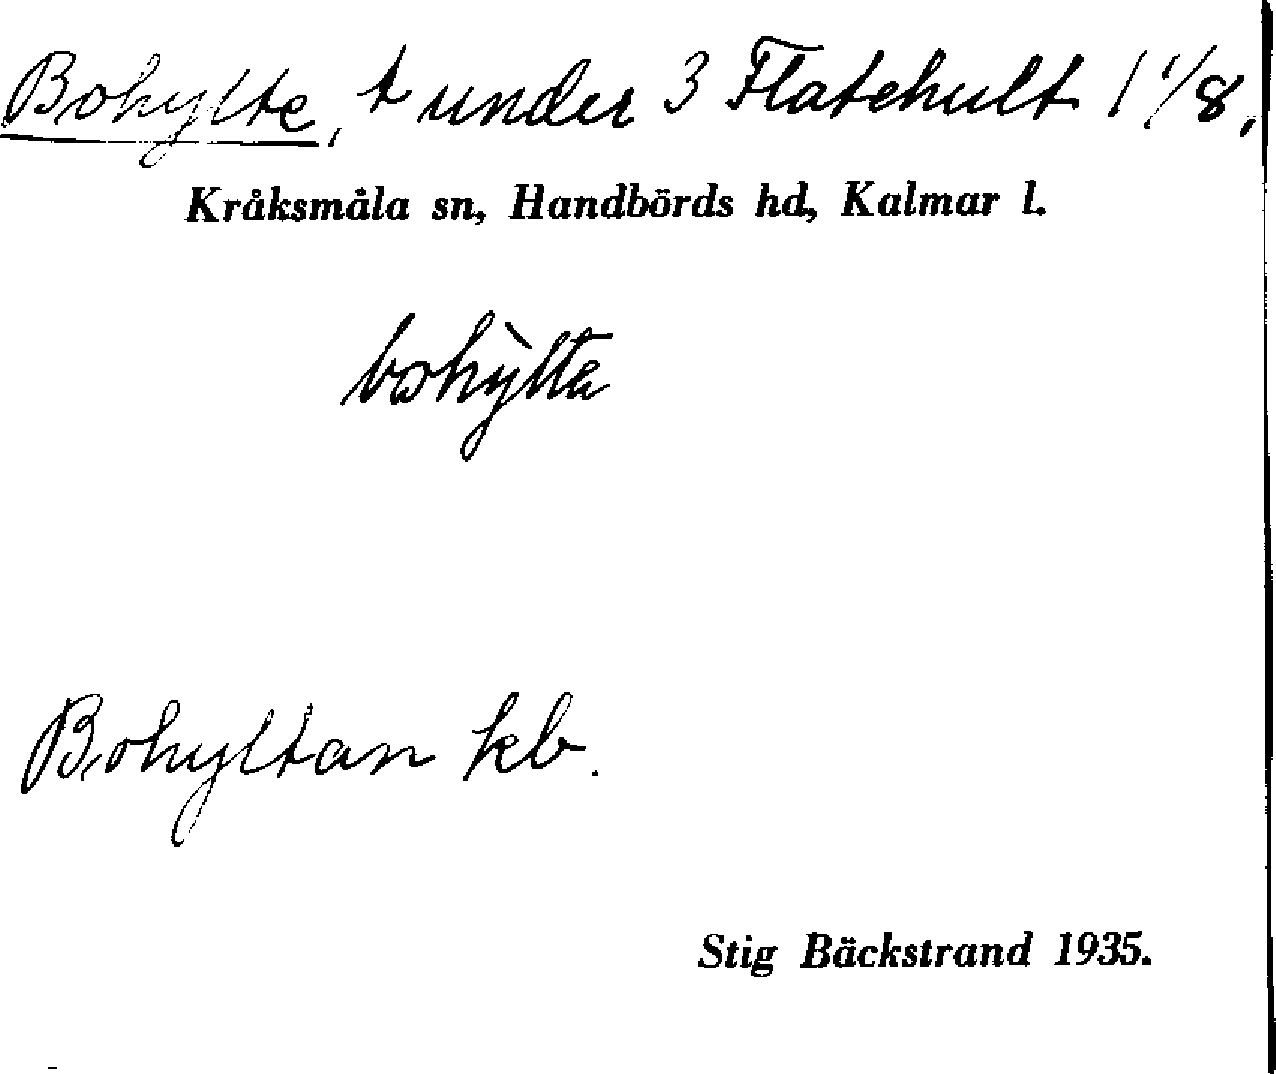 Bohylte, t under 3 Flatehult 1 1/8,
Kråksmåla sn, Handbörds hd, Kalmar l.
bohỳlta
Bohyltan kb.
Stig Bäckstrand 1935.